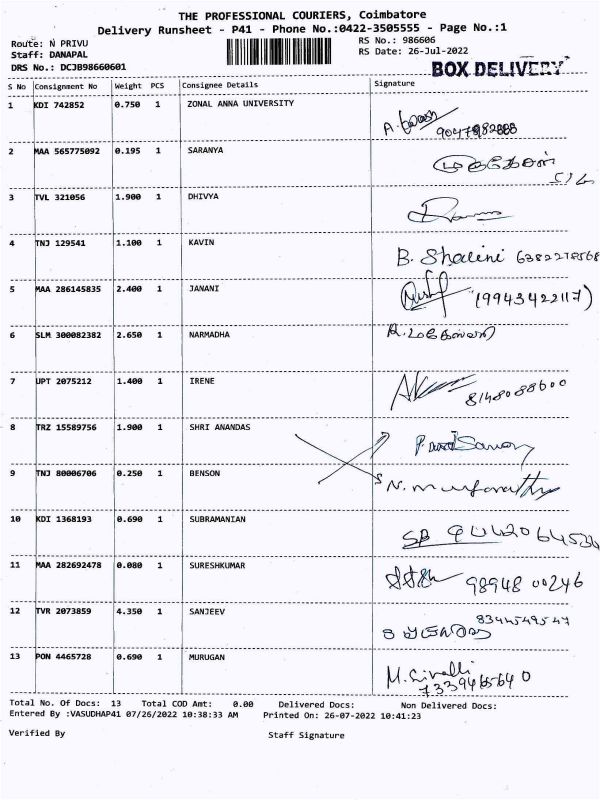 THE PROFESSIONAL COURIERS, Coimbatore
Delivery Runsheet - P41 - Phone No.:0422-3505555 - Page No.:1
Route: N PRIVU RS No.: 986606
Staff: DANAPAL RS Date: 26-Jul-2022
DRS No.: DCJB98660601 BOX DELIVERY
S No Consignment No Weight PCS Consignee Details Signature
1 KDI 742852 0.750 1 ZONAL ANNA UNIVERSITY
2 MAA 565775092 0.195 1 SARANYA
3 TVL 321056 1.900 1 DHIVYA
4 TNJ 129541 1.100 1 KAVIN B. Shalini
5 MAA 286145835 2.400 1 JANANI (9943422117)
6 SLM 300082382 2.650 1 NARMADHA
7 UPT 2075212 1.400 1 IRENE 8148088600
8 TRZ 15589756 1.900 1 SHRI ANANDAS
9 TNJ 80006706 0.250 1 BENSON
10 KDI 1368193 0.690 1 SUBRAMANIAN
11 MAA 282692478 0.080 1 SURESHKUMAR 98948 00246
12 TVR 2073859 4.350 1 SANJEEV 8344549547
13 PON 4465728 0.690 1 MURUGAN
Total No. Of Docs: 13 Total COD Amt: 0.00 Delivered Docs: Non Delivered Docs:
Entered By :VASUDHAP41 07/26/2022 10:38:33 AM Printed On: 26-07-2022 10:41:23
Verified By Staff Signature